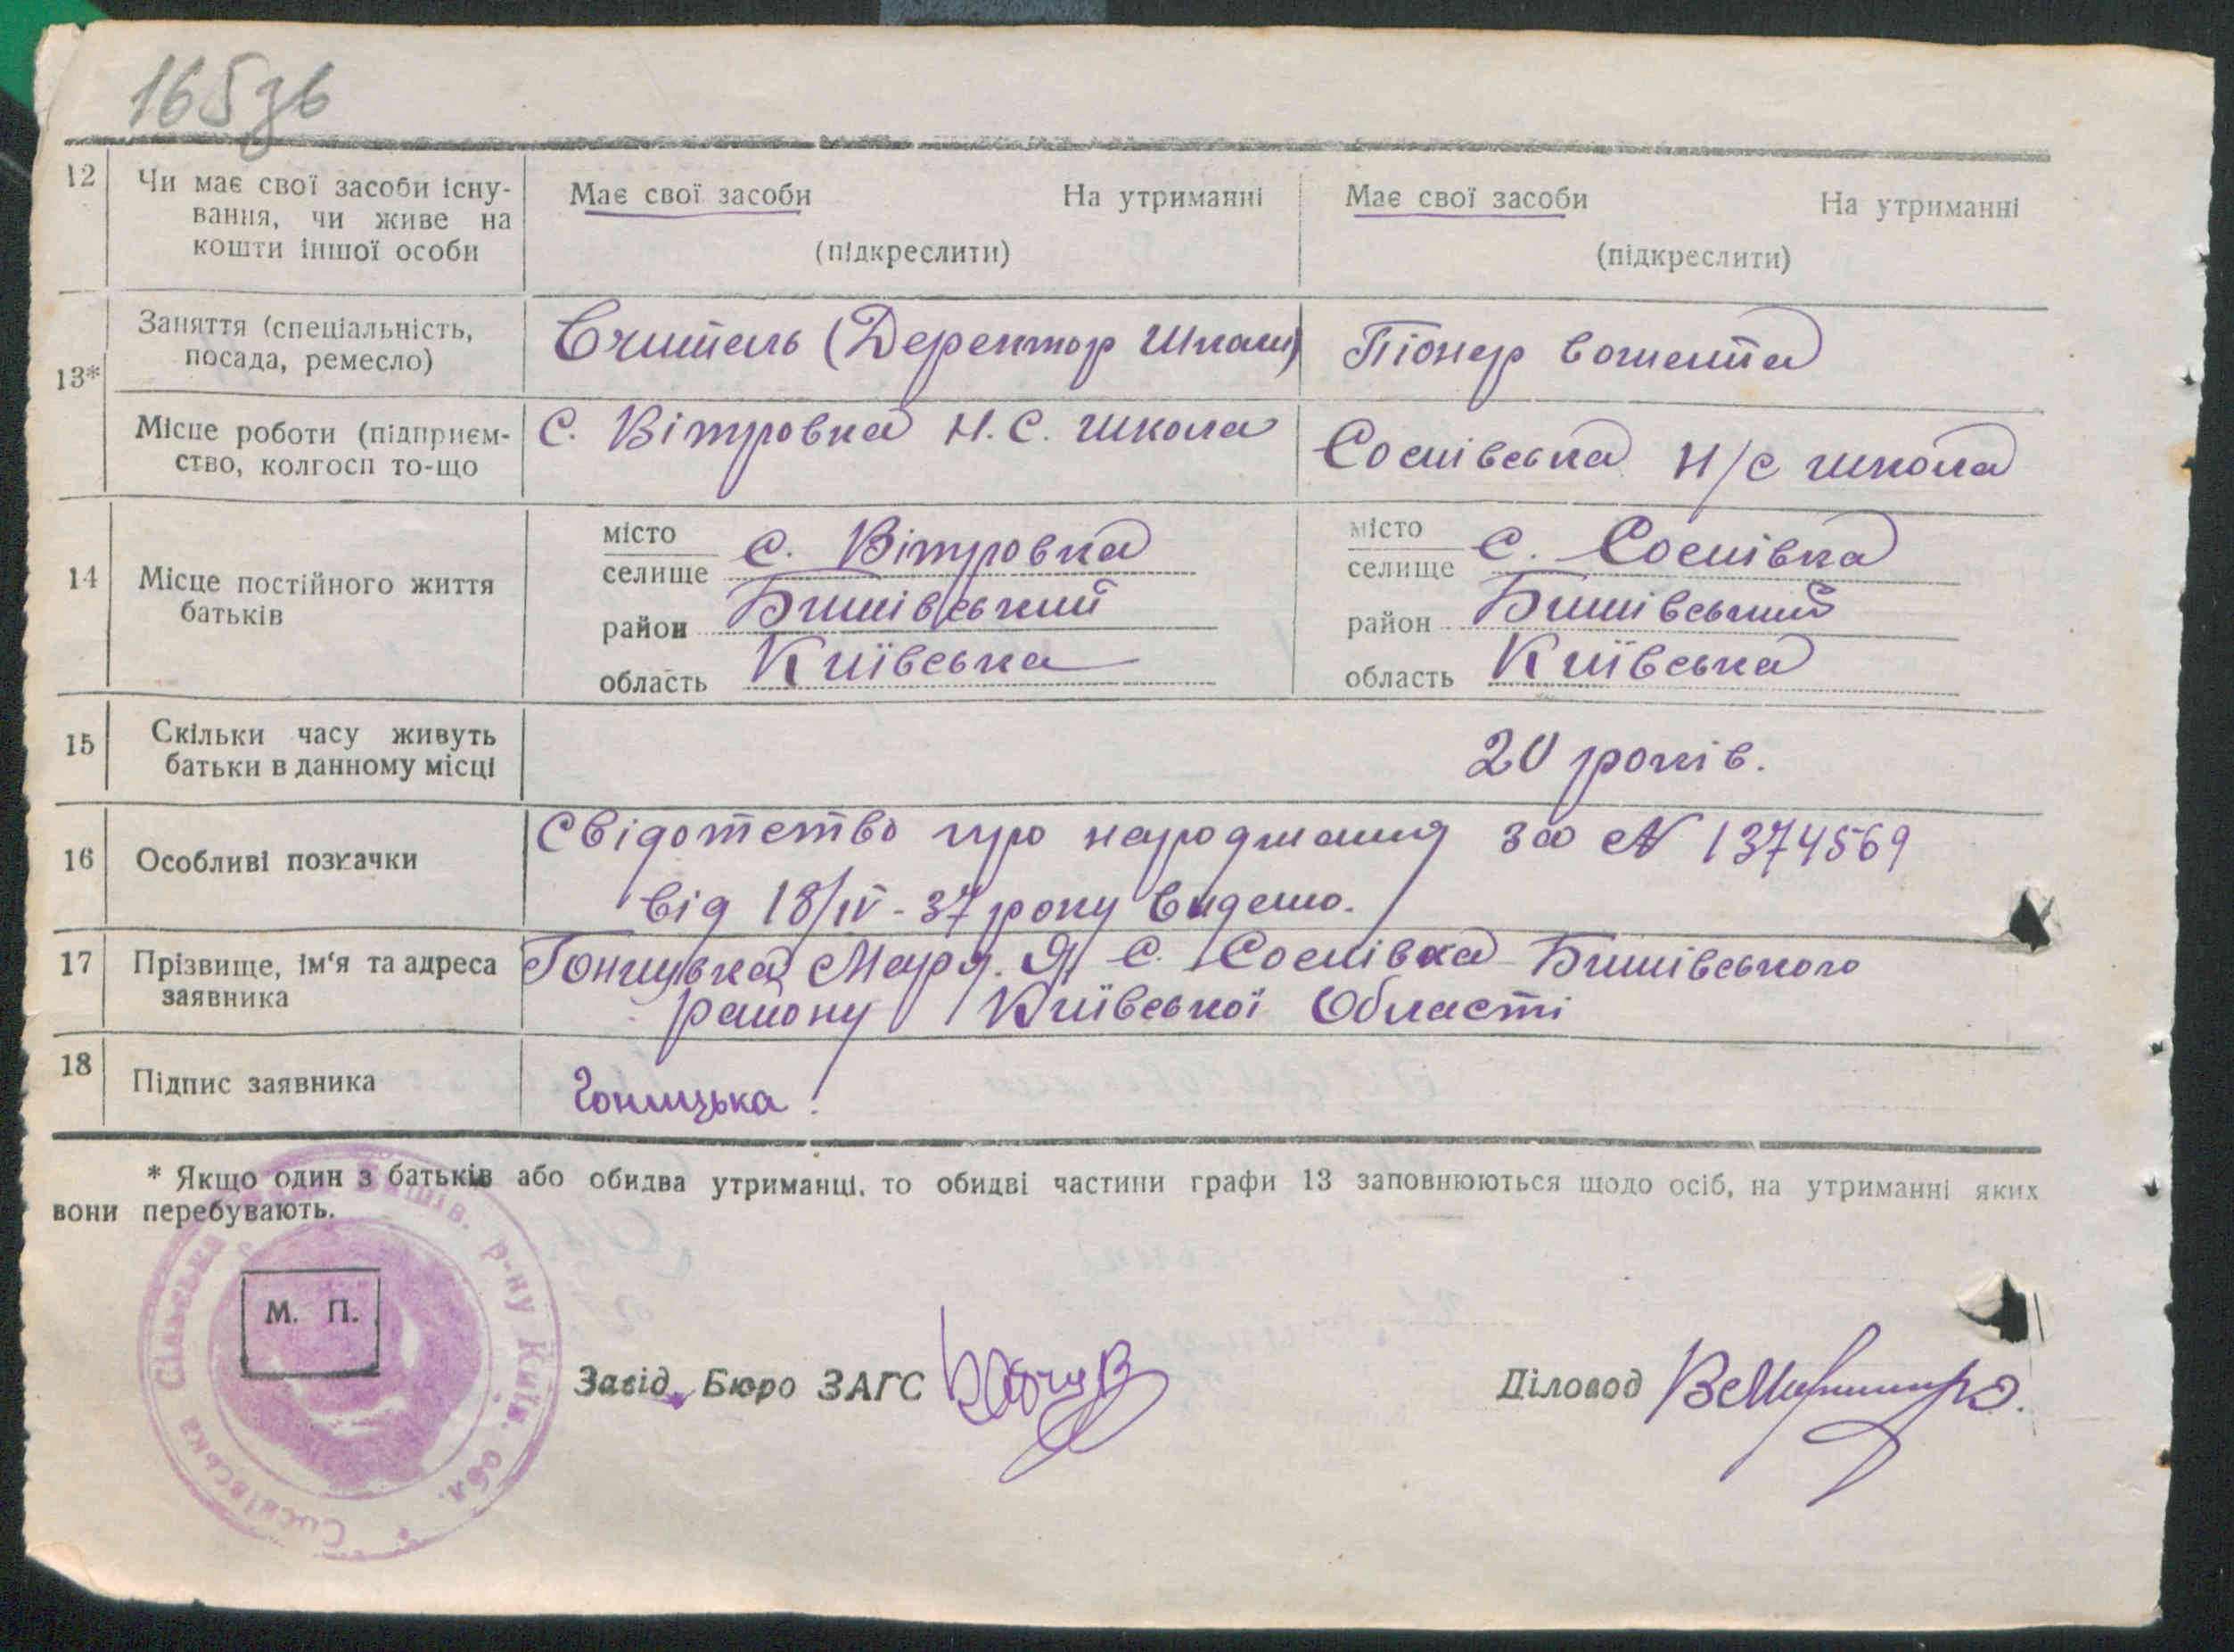 165зв
12 Чи має свої засоби існу-
вання, чи живе на
кошти іншої особи
Має свої засоби На утриманні
(підкреслити)
Має свої засоби На утриманні
(підкреслити)
13*
Заняття (спеціальність,
посада, ремесло)
Вчитель (Деректор Школи)
Піонер вожата
Місце роботи (підприєм-
ство, колгосп то-що
С. Вітровка Н.С. школа
Соснівська Н/с школа
14 Місце постійного життя
батьків
місто
селище с. Вітровка
район Бишівський
область Київська
місто
селище с. Соснівка
район Бишівський
область Київська
15 Скільки часу живуть
батьки в данному місці
20 років.
16 Особливі позначки
Свідотетво про народжання за № 1374569
від 18/IV-37 року видено.
17 Прізвище, ім‘я та адреса
заявника
Марія. Я. с. Соснівка Бишівського
району Київської Області
18 Підпис заявника
Гоницька
* Якщо один з батьків або обидва утриманці, то обидві частини графи 13 заповнюються щодо осіб, на утриманні яких
вони перебувають.
Соснівська Сільська Бишів. р-ну Київ. обл.
М. П.
Завід. Бюро ЗАГС
Діловод